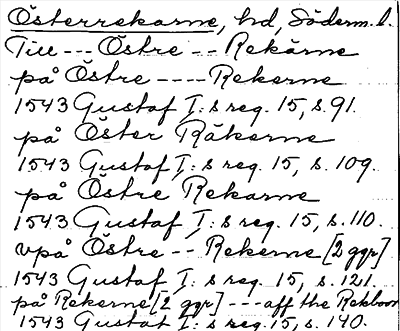 Österrekarne, hd, Söderm. l.
Till --- Östre -- Rekärne
på Östre ---- Rekerne
1543 Gustaf I:s reg. 15, s. 91.
på Öster Räkerne
1543 Gustaf I:s reg. 15, s. 109.
på Östre Rekarne
1543 Gustaf I:s reg. 15, s. 110.
vpå Östre -- Rekerne [2 ggr]
1543 Gustaf I:s reg. 15, s. 121.
på Rekerne [2 ggr] --- aff the Rekboor
1543 Gustaf I:s reg. 15, s. 140.